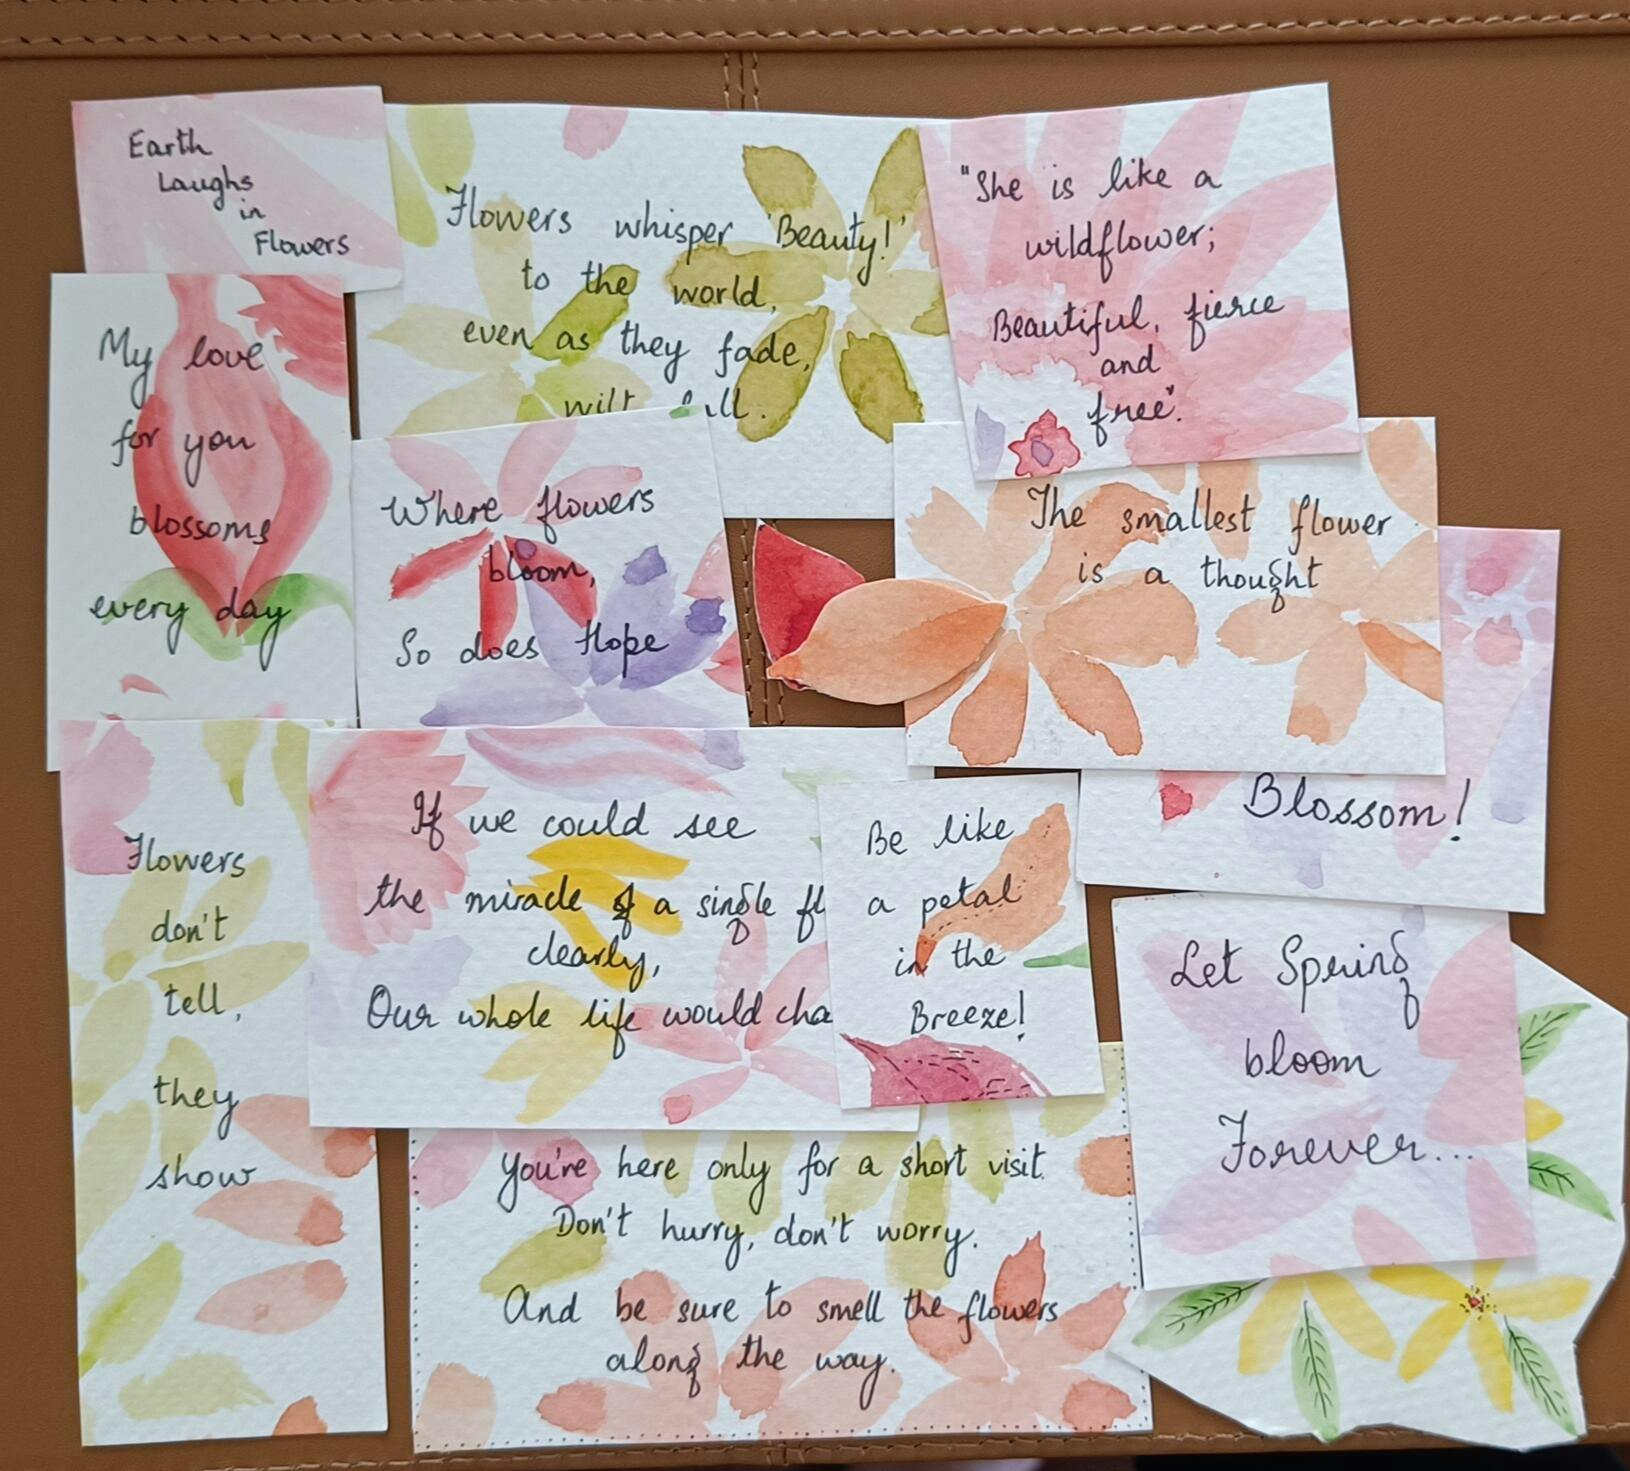 Earth
Laughs
in
Flowers
Flowers whisper 'Beauty!'
to the world,
even as they fade,
wilt
"She is like a
wildflower;
Beautiful, fierce
and
free".
My love
for you
blossoms
every day
Where flowers
bloom,
So does Hope
The smallest flower
is a thought
Blossom!
Flowers
don't
tell,
they
show
If we could see
the miracle of a single fl
clearly,
Our whole life would cha
Be like
a petal
in the
Breeze!
Let Spring
bloom
Forever...
You're here only for a short visit.
Don't hurry, don't worry.
And be sure to smell the flowers
along the way.